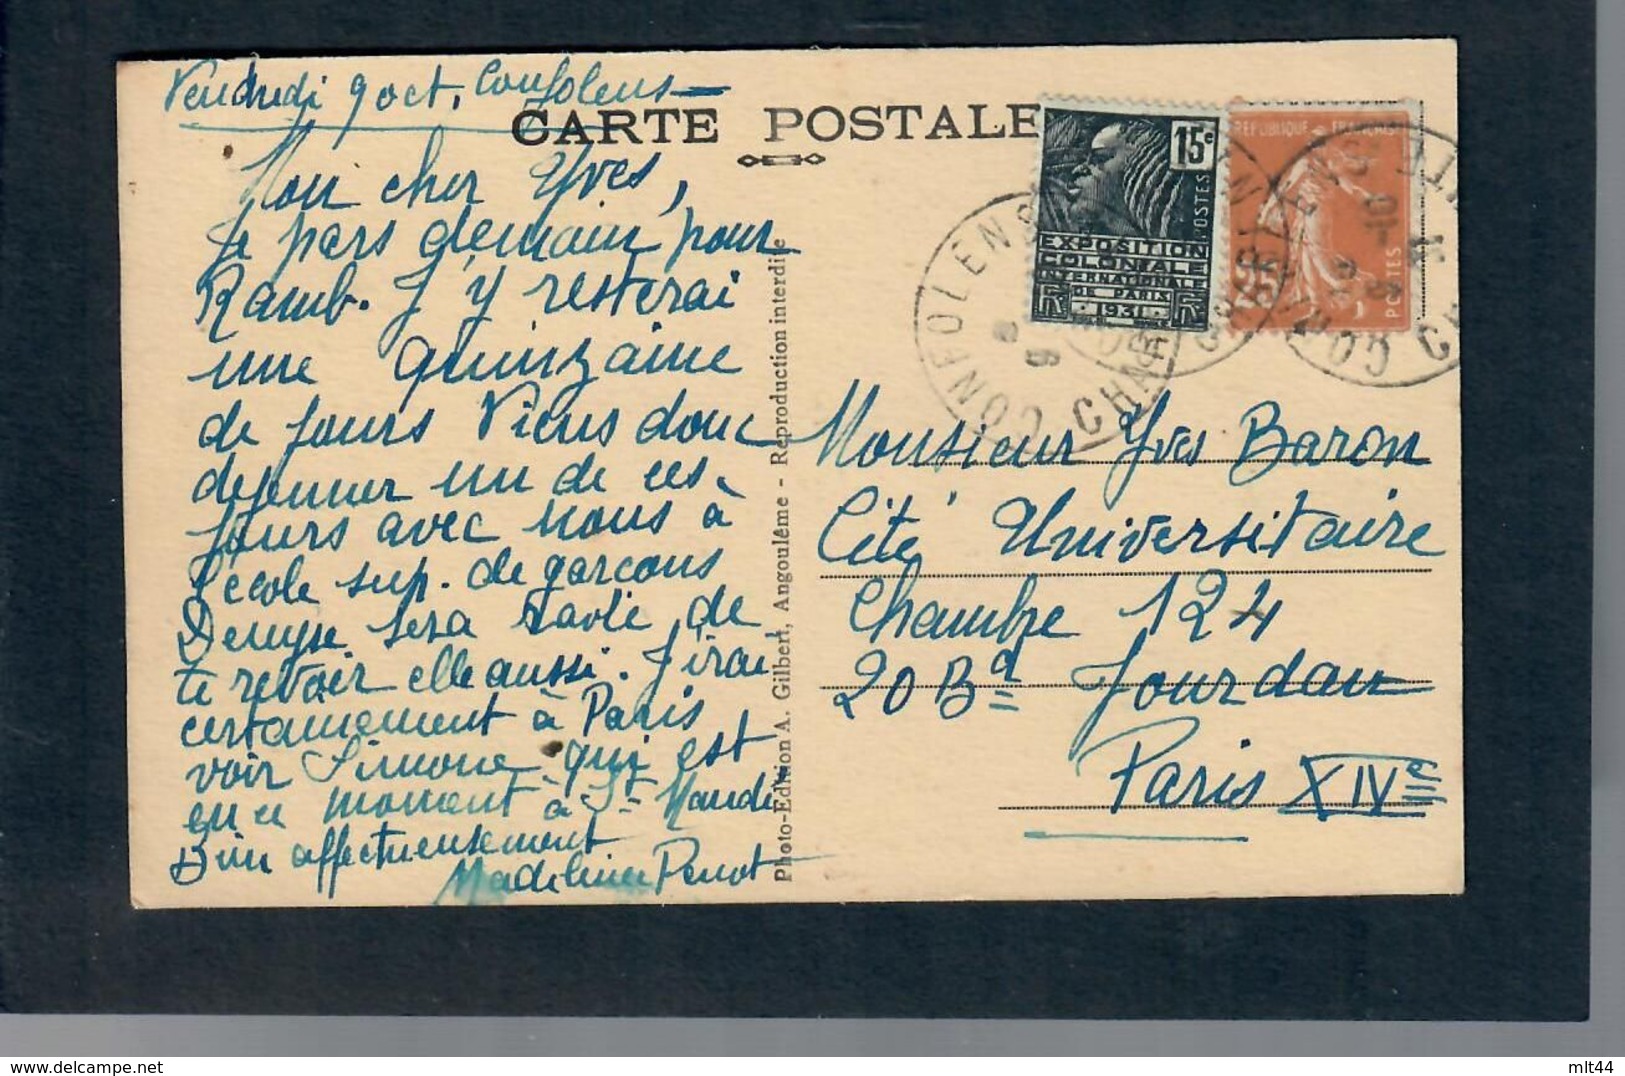 Vendredi 9 oct. Confolens
CARTE POSTALE
Mon cher Yves,
Je pars demain pour
Ramb. J'y resterai
une quinzaine
de jours Viens donc
dejeuner un de ces
jours avec nous à
l'ecole sup. de garcons
Denyse sera ravie de
te revoir elle aussi. J'irai
certainement à Paris
voir Simone qui est
en ce moment à St Mandé
Bien affectueusement
Madeleine
Photo-Edition A. Gilbert, Angoulême - Reproduction interdite
15c
POSTES
EXPOSITION
COLONIALE
INTERNATIONALE
DE PARIS
1931
REPUBLIQUE FRANCAISE
POSTES
CONFOLENS
Monsieur Yves Baron
Cité Universitaire
Chambre 124
20 Bd Jourdan
Paris XIVe
mlt44